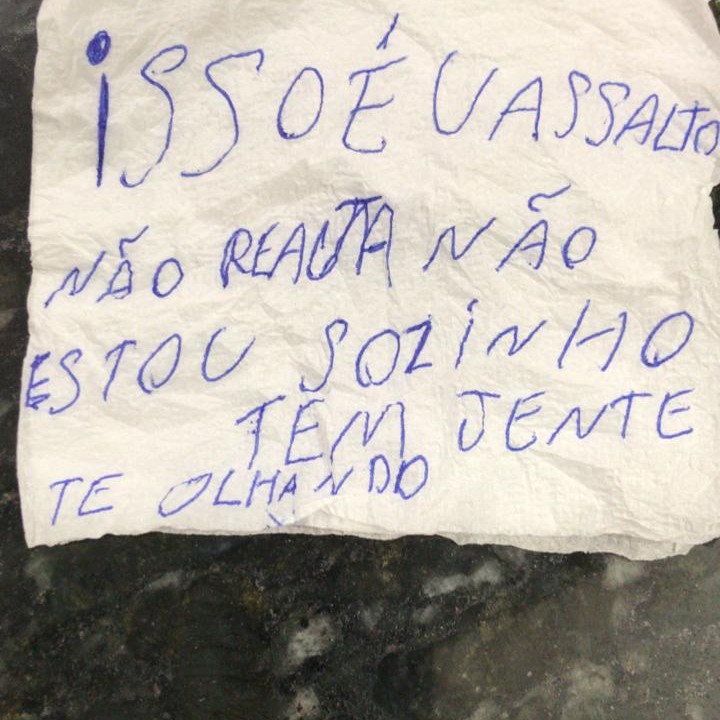 ISSO É U ASSALTO
NÃO REAJTA NÃO
ESTOU SOZINHO
TEM JENTE
TE OLHANDO